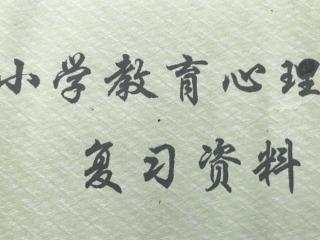 小学教育心理
复习资料